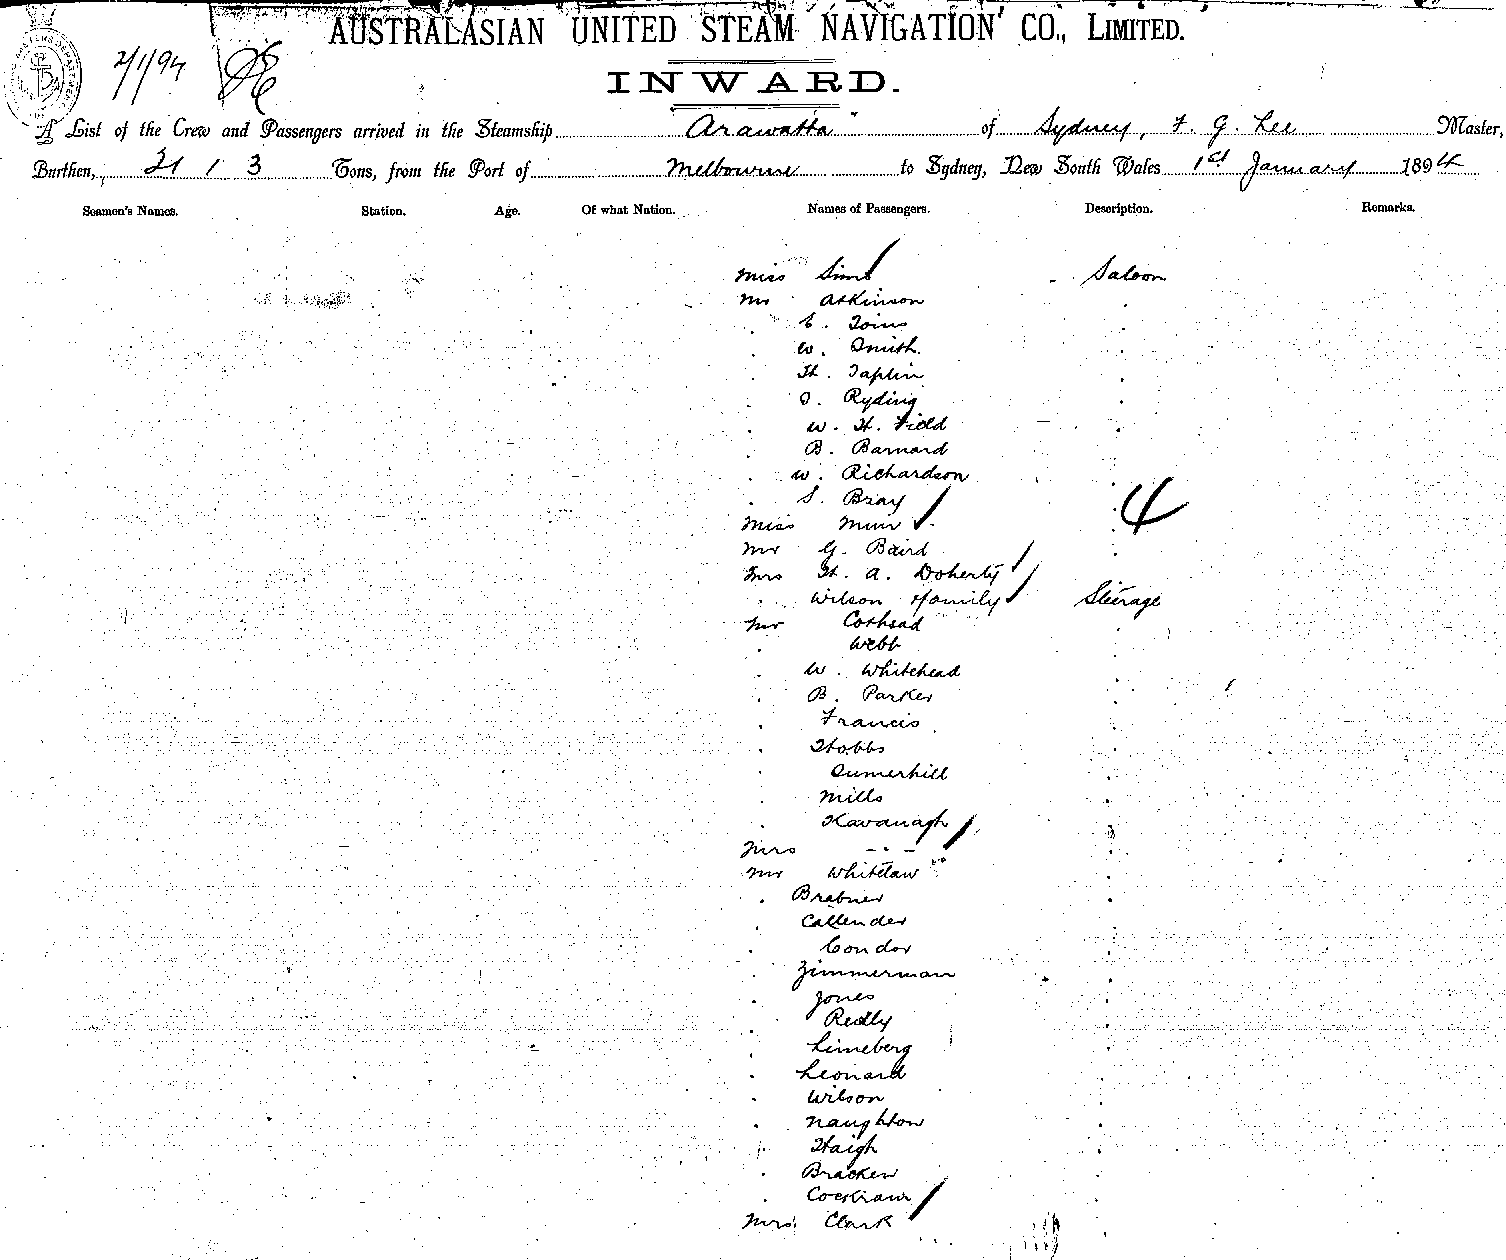 AUSTRALASIAN UNITED STEAM NAVIGATION CO., LIMITED.
2/1/94
INWARD.
A List of the Crew and Passengers arrived in the Steamship Arawatta of Sydney, F. G. Lee Master,
Burthen, 21 1 3 Tons, from the Port of Melbourne to Sydney, New South Wales 1st January 1894
Seamen's Names. Station. Age. Of what Nation. Names of Passengers. Description. Remarks.
Miss Sims Saloon
Mr Atkinson
E. Toins
W. Smith.
H. Taplin
O. Ryding
W. H. Field
B. Barnard
W. Richardson
S. Bray
4
Miss Muir
Mr G. Baird
Mrs H. A. Doherty
Wilson Family Steerage
Mr Coxhead
Webb
W. Whitehead
B. Parker
Francis
Hobbs
Sumerhill
Mills
Kavanagh
Mrs - . -
Mr Whitelaw
Brabner
Callender
Condor
Zimmerman
Jones
Reilly
Limeberg
Leonard
Wilson
Naughton
Haigh
Bracken
Cockram
Mrs. Clark